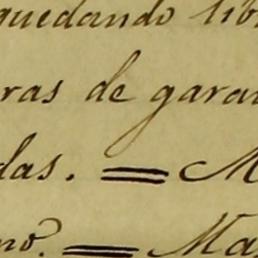 quedando lib
ras de gara
das. = M
no. = Ma